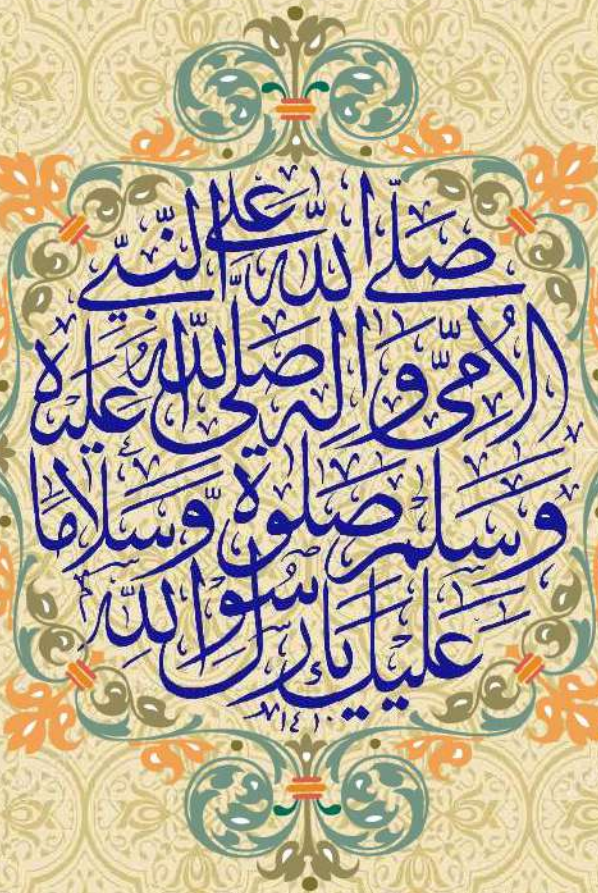 صَلَّى اللّٰهُ عَلَى النَّبِيِّ
الْاُمِّيِّ وَاٰلِهٖ صَلَّى اللّٰهُ عَلَيْهِ
وَسَلَّمَ صَلٰوةً وَّسَلَامًا
عَلَيْكَ يَا رَسُوْلَ اللّٰهِ
١٤١٠